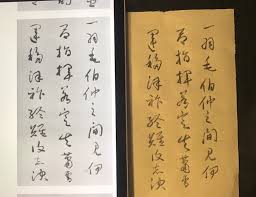 一羽毛伯仲之間見伊
呂指揮若定失蕭曹
運移漢祚終難復志決
一羽毛伯仲之間見伊
呂指揮若定失蕭曹
運移漢祚終難復志決